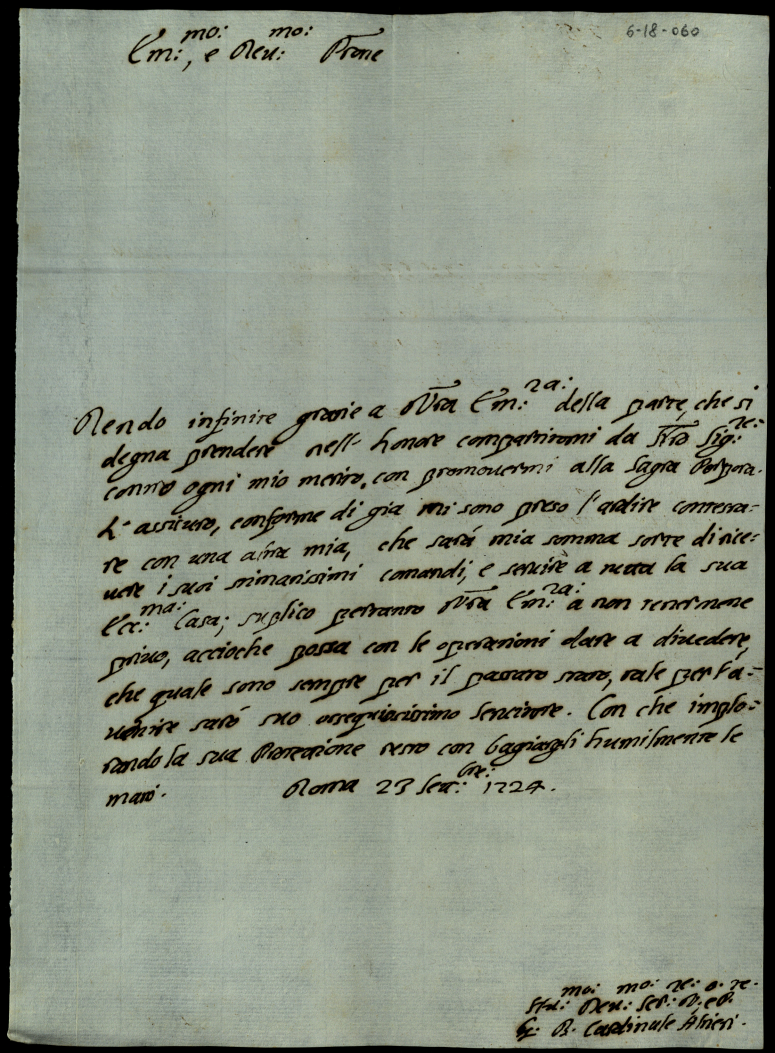 6-18-060
Em:mo:, e Reu:mo: Prone
Rendo infinite grazie a Vra Em:za: della parte, che si
degna prendere nell' honore compartitomi da Nro Sig:re:
contro ogni mio merito, con promouermi alla Sagra Porpora.
L' assicuro, conforme di già mi sono preso l'ardire contesta-
re con una altra mia, che sarà mia somma sorte di rice-
uere i suoi stimatissimi comandi, e seruire a tutta la sua
Ecc:ma: Casa; suplico pertanto Vra Em:za: a non tenermene
priuo, accioche possa con le operationi dare a diuedere,
che quale sono sempre per il passato stato, tale per l'a-
uenire sarò suo ossequiosissimo Seruitore. Con che implo-
rando la sua Protezione resto con bagiargli humilmente le
mani. Roma 23 Sett:bre: 1724.
Hu:mo: Deu:mo: Ser:re: V:o e P:re
G. B. Cardinale Altieri.